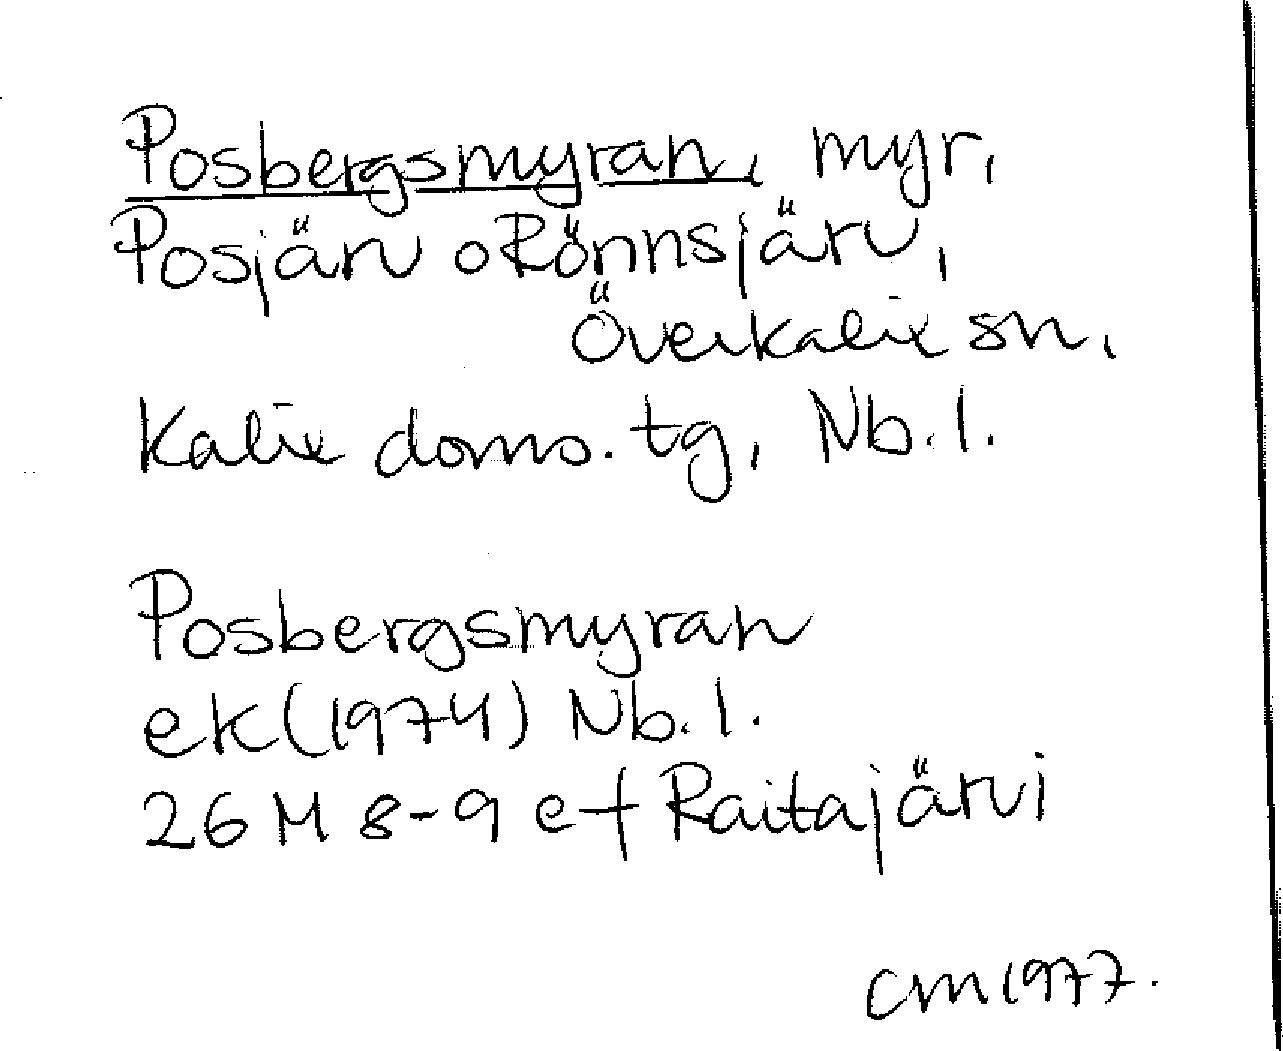 Posbergsmyran, myr,
Posjärv o Rönnsjärv,
Överkalix sn,
Kalix doms. tg, Nb. l.
Posbergsmyran
ek (1974) Nb. l.
26 M 8-9 ef Raitajärvi
CM 1977.